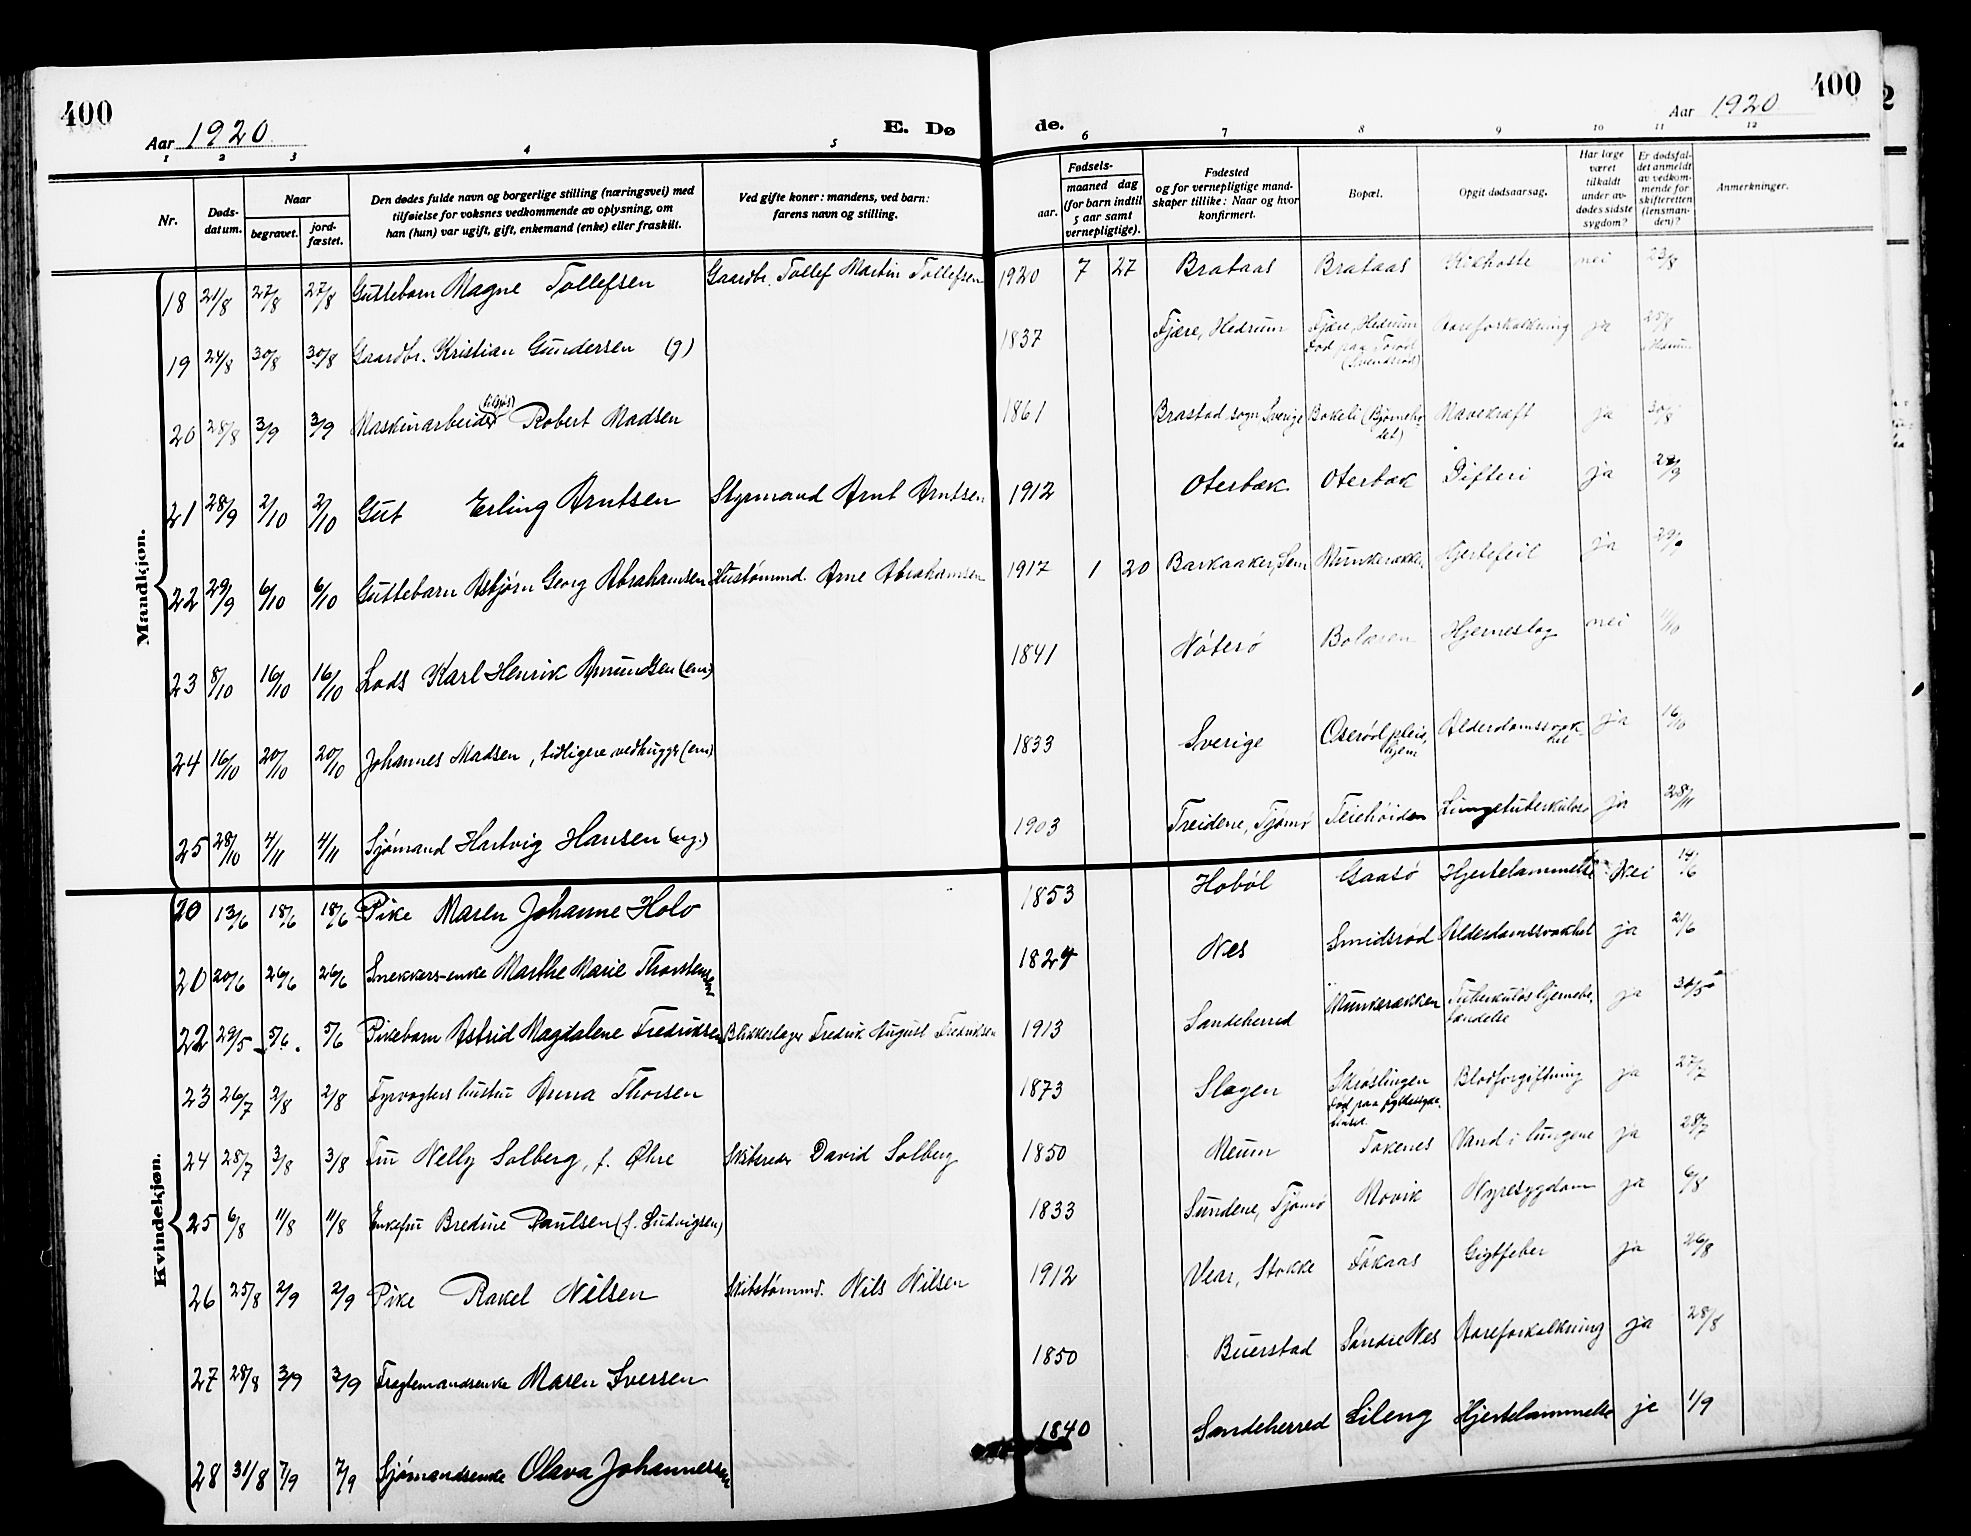 400
Aar 1920
E. Dø
de.
Aar 1920
400
1 2 3 4 5 6 7 8 9 10 11 12
Nr.
Døds-
datum.
Naar
begravet.
jord-
fæstet.
Den dødes fulde navn og borgerlige stilling (næringsvei) med
tilføielse for voksnes vedkommende av oplysning, om
han (hun) var ugift, gift, enkemand (enke) eller fraskilt.
Ved gifte koner: mandens, ved barn:
farens navn og stilling.
Fødsels-
aar.
maaned dag
(for barn indtil
5 aar samt
vernepligtige).
Fødested
og for vernepligtige mand-
skaper tillike: Naar og hvor
konfirmert.
Bopæl.
Opgit dødsaarsag.
Har læge
været
tilkaldt
under av-
dødes sidste
sygdom?
Er dødsfal-
det anmeldt
av vedkom-
mende for
skifteretten
(lensman-
den)?
Anmerkninger.
Mandkjøn.
18 21/8 27/8 27/8 Guttebarn Magne Tollefsen Gaardbr. Tollef Martin Tollefsen 1920 7 27 Brataas Brataas Kikhoste nei 23/8
19 24/8 30/8 30/8 Gaardbr. Kristian Gundersen (g) 1837 Fjære, Hedrum Fjære, Hedrum Aareforkalkning ja 25/8
Død paa Torød
(Svendsrød)
20 28/8 3/9 3/9 Maskinarbeider Robert Madsen 1861 Brastad sogn, Sverige Bokeli (Bjørnebo- Mavekræft ja 30/8
det)
21 28/9 2/10 2/10 Gut Erling Arntsen Styrmand Arnt Arntsen 1912 Oterbæk Oterbæk Difteri ja 28/9
22 29/9 6/10 6/10 Guttebarn Asbjørn Georg Abrahamsen Hustømmd. Arne Abrahamsen 1917 1 20 Barkaaker, Sem Munkerækken Hjertefeil ja 29/9
23 8/10 16/10 16/10 Lods Karl Henrik Amundsen (em) 1841 Nøterø Bolæren Hjerneslag nei 11/10
24 16/10 20/10 20/10 Johannes Madsen, tidligere vedhugger (em) 1833 Sverige Oserød pleie- Alderdomssvak- ja 16/10
hjem het
25 28/10 4/11 4/11 Sjømand Hartvig Hansen (ug.) 1903 Treidene, Tjømø Teiehøiden Lungetuberkulose ja 28/11
Kvindekjøn.
20 13/6 18/6 18/6 Pike Maren Johanne Holv 1853 Hobøl Gaasø Hjertelammelse Nei 14/6
20 20/6 26/6 26/6 Snekkers-enke Marthe Marie Thorstensen 1824 Nes Smidsrød Alderdomssvakhet ja 21/6
22 29/5 5/6 5/6 Pikebarn Astrid Magdalene Fredriksen Blikkeslager Fredrik August Fredriksen 1913 Sandeherred Munkerækken Tuberkuløs hjernebe- ja 30/5
tændelse
23 26/7 2/8 2/8 Fyrvogters hustru Anna Thorsen 1873 Slagen Skrøslingen Blodforgiftning ja 27/7
Død paa fylkessyke-
huset
24 28/7 3/8 3/8 Fru Nelly Solberg, f. Øhre Skibsreder David Solberg 1850 Neum Tokenes Vand i lungene ja 28/7
25 6/8 11/8 11/8 Enkefru Bredine Paulsen (f. Ludvigsen) 1833 Sundene, Tjømø Movik Nyresygdom ja 6/8
26 25/8 2/9 2/9 Pike Rakel Nilsen Skibstømmd. Nils Nilsen 1912 Vear, Stokke Føkaas Gigtfeber ja 26/8
27 28/8 3/9 3/9 Fragtemandsenke Maren Iversen 1850 Buerstad Søndre Nes Aareforkalkning ja 28/8
28 31/8 7/9 7/9 Sjømandsenke Olava Johannessen 1840 Sandeherred Lileng Hjertelammelse ja 1/9